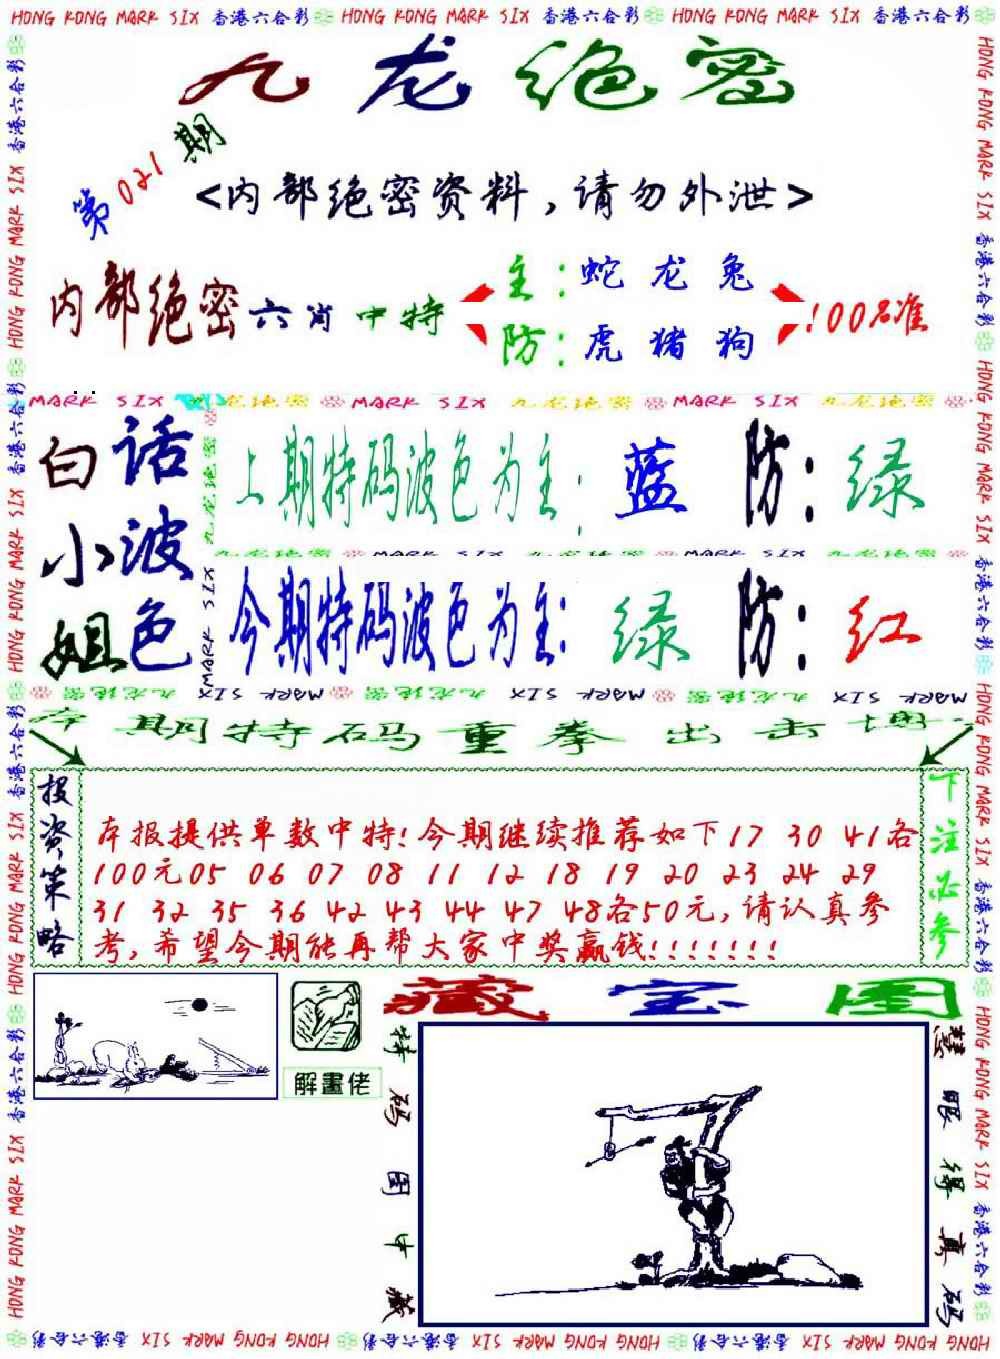 HONG KONG MARK SIX 香港六合彩 HONG KONG MARK SIX 香港六合彩 HONG KONG MARK SIX 香港六合彩
九龙绝密
第021期
<内部绝密资料,请勿外泄>
内部绝密六肖中特
主:蛇 龙 兔
防:虎 猪 狗
100%准
MARK SIX 九龙绝密 MARK SIX 九龙绝密 MARK SIX 九龙绝密
白小姐
话波色
上期特码波色为主:蓝 防:绿
九龙绝密 MARK SIX 九龙绝密 MARK SIX 九龙绝密
今期特码波色为主:绿 防:红
九龙绝密 MARK SIX 九龙绝密 MARK SIX 九龙绝密 MARK SIX
本期特码重拳出击
投资策略
本报提供单数中特!今期继续推荐如下17 30 41各
100元05 06 07 08 11 12 18 19 20 23 24 29
31 32 35 36 42 43 44 47 48各50元,请认真参
考,希望今期能再帮大家中奖赢钱!!!!!!!
下注必参
解畫佬
藏宝图
特码图中藏
慧眼得真码
HONG KONG MARK SIX 香港六合彩 HONG KONG MARK SIX 香港六合彩 HONG KONG MARK SIX 香港六合彩